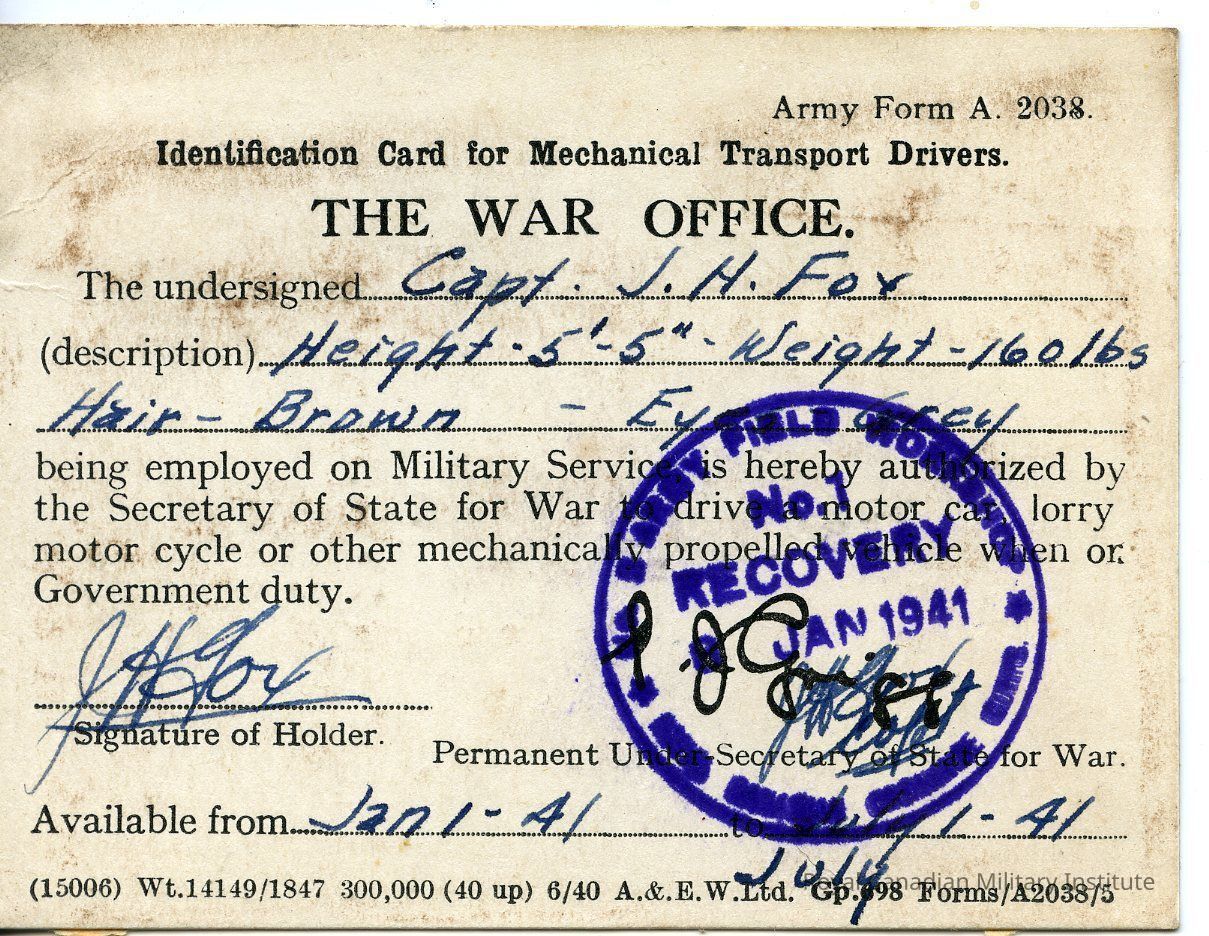 Army Form A. 2038.
Identification Card for Mechanical Transport Drivers.
THE WAR OFFICE.
The undersigned Capt. J. H. Fox
(description) Height - 5'-5" - Weight - 160 lbs
Hair - Brown - Grey
being employed on Military Service, is hereby authorized by
the Secretary of State for War to drive a motor car, lorry
motor cycle or other mechanically propelled vehicle when on
Government duty.
JH Fox
Signature of Holder.
Permanent Under-Secretary of State for War.
ARMY FIELD WORKSHOP
No. 1
RECOVERY
JAN 1941
Available from Jan 1 - 41 to July 1 - 41
July
(15006) Wt.14149/1847 300,000 (40 up) 6/40 A.&E.W.Ltd. Gp.698 Forms/A2038/5
Royal Canadian Military Institute